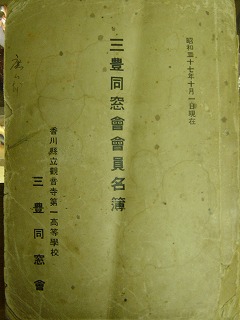 昭和三十七年十月一日現在
三豊同窓會會員名簿
香川縣立觀音寺第一高等學校
三豊同窓會